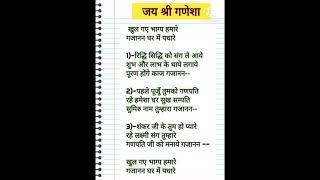 जय श्री गणेशा
खुल गए भाग्य हमारे
गजानन घर में पधारे
1)-रिद्धि सिद्धि को संग ले आये
शुभ और लाभ के थाये लगाये
पूरण होंगे काज गजानन--
2)-पहले पूजूँ तुमको गणपति
रहे हमेशा घर सुख सम्पति
सुमिरु नाम तुम्हारा गजानन--
3)-शंकर जी के तुम हो प्यारे
रहे लक्ष्मी संग तुम्हारे
गणपति जी को मनाये गजानन --
खुल गए भाग्य हमारे
गजानन घर में पधारे